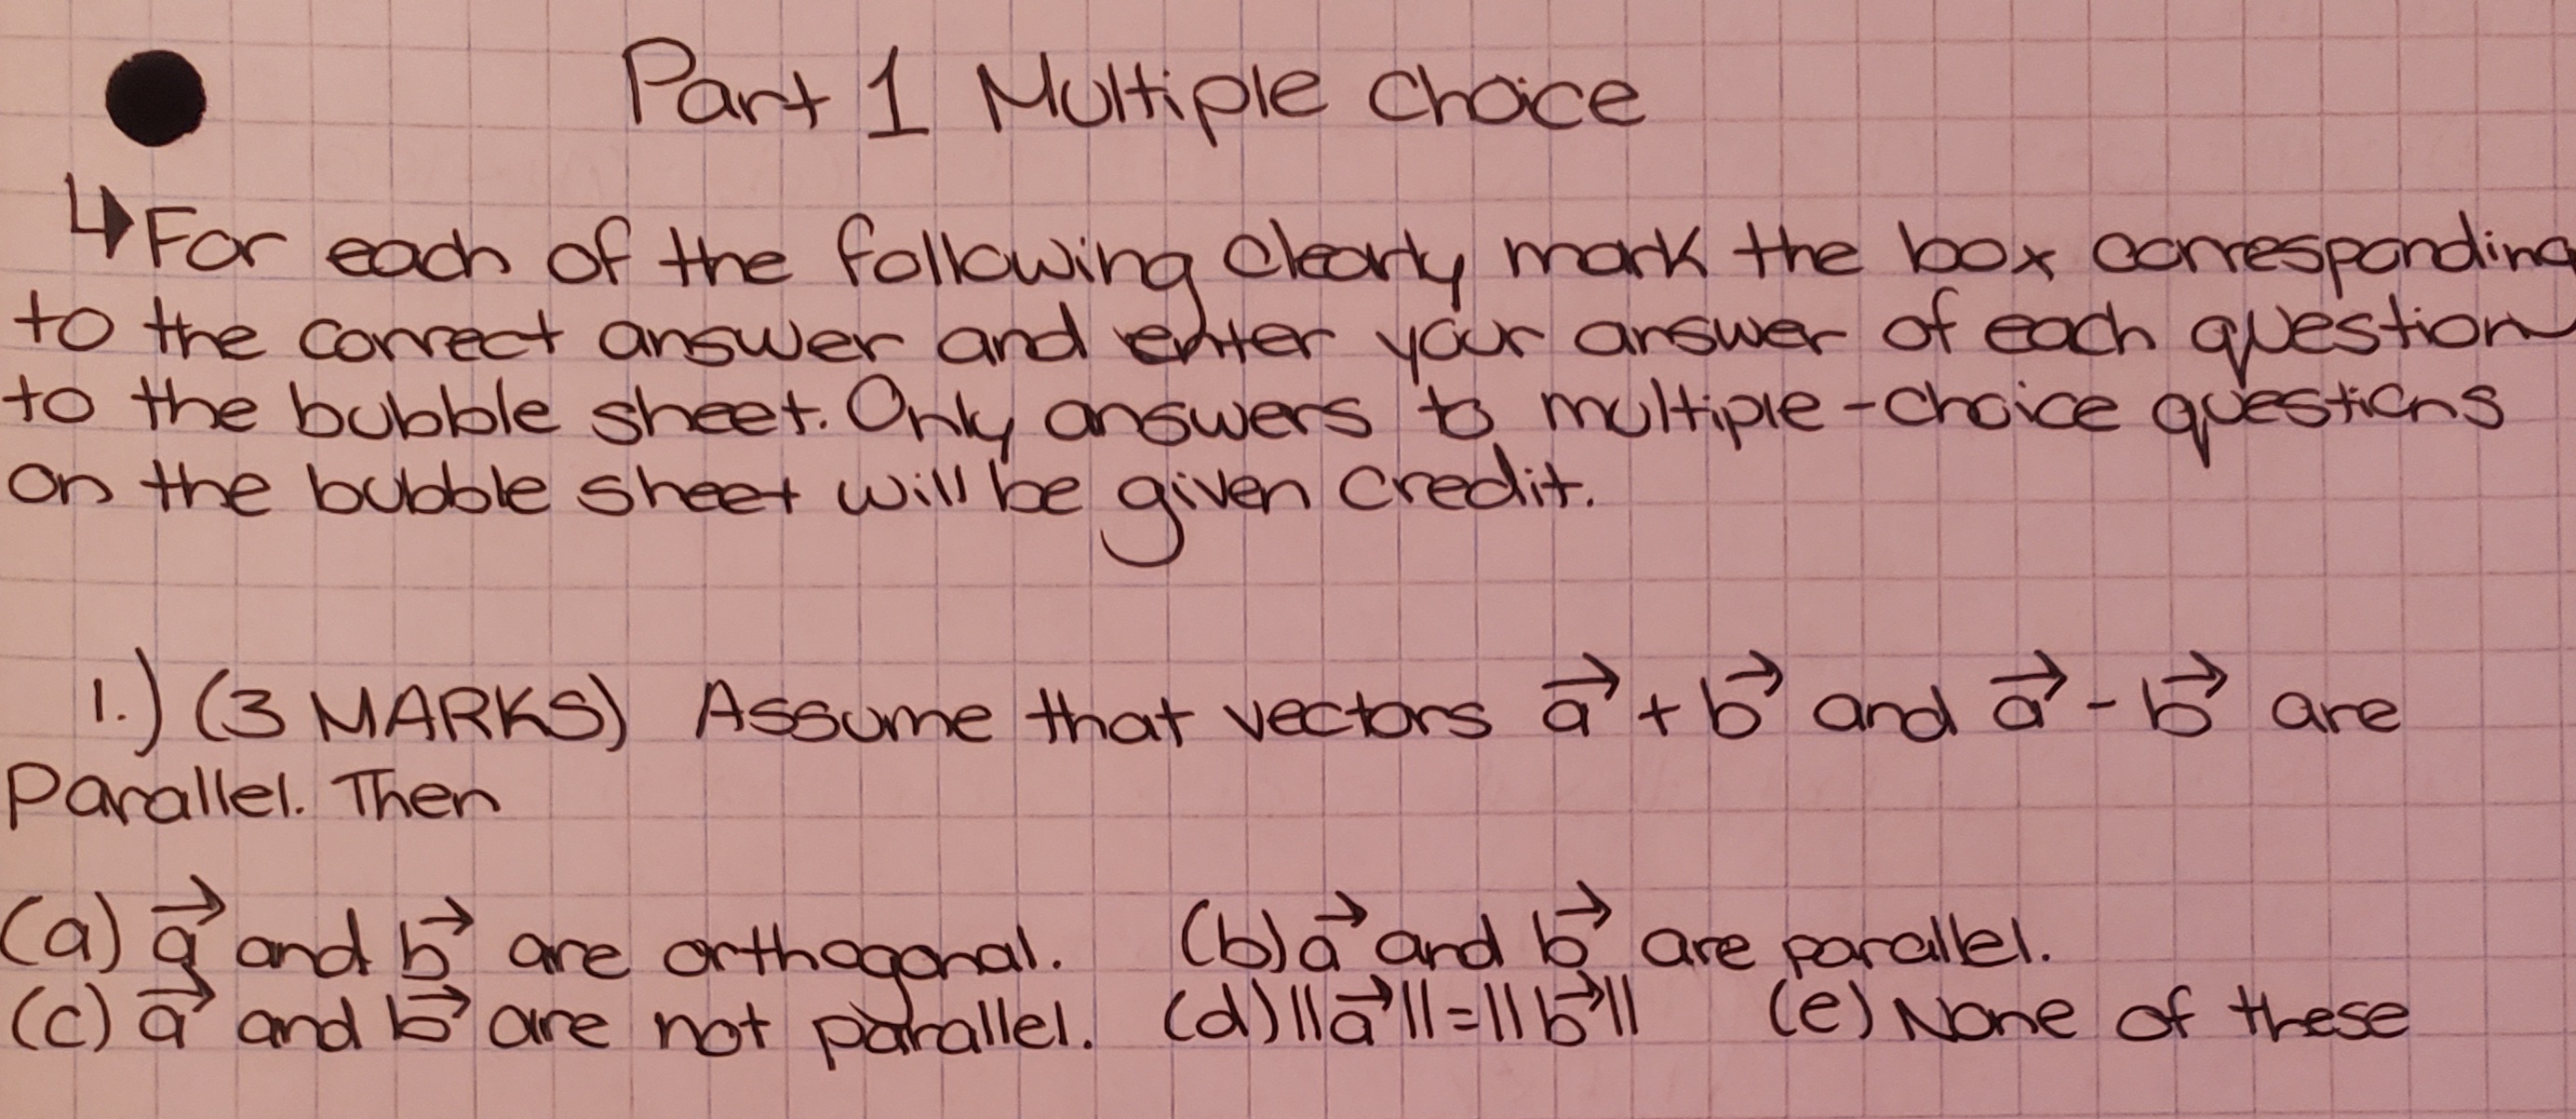 Part 1 Multiple Choice
↳For each of the following clearly mark the box corresponding
to the correct answer and enter your answer of each question
to the bubble sheet. Only answers to multiple-choice questions
on the bubble sheet will be given credit.
1.) (3 MARKS) Assume that vectors a⃗ + b⃗ and a⃗ - b⃗ are
Parallel. Then
(a) a⃗ and b⃗ are orthogonal. (b) a⃗ and b⃗ are parallel.
(c) a⃗ and b⃗ are not parallel. (d) ||a⃗|| = ||b⃗|| (e) None of these